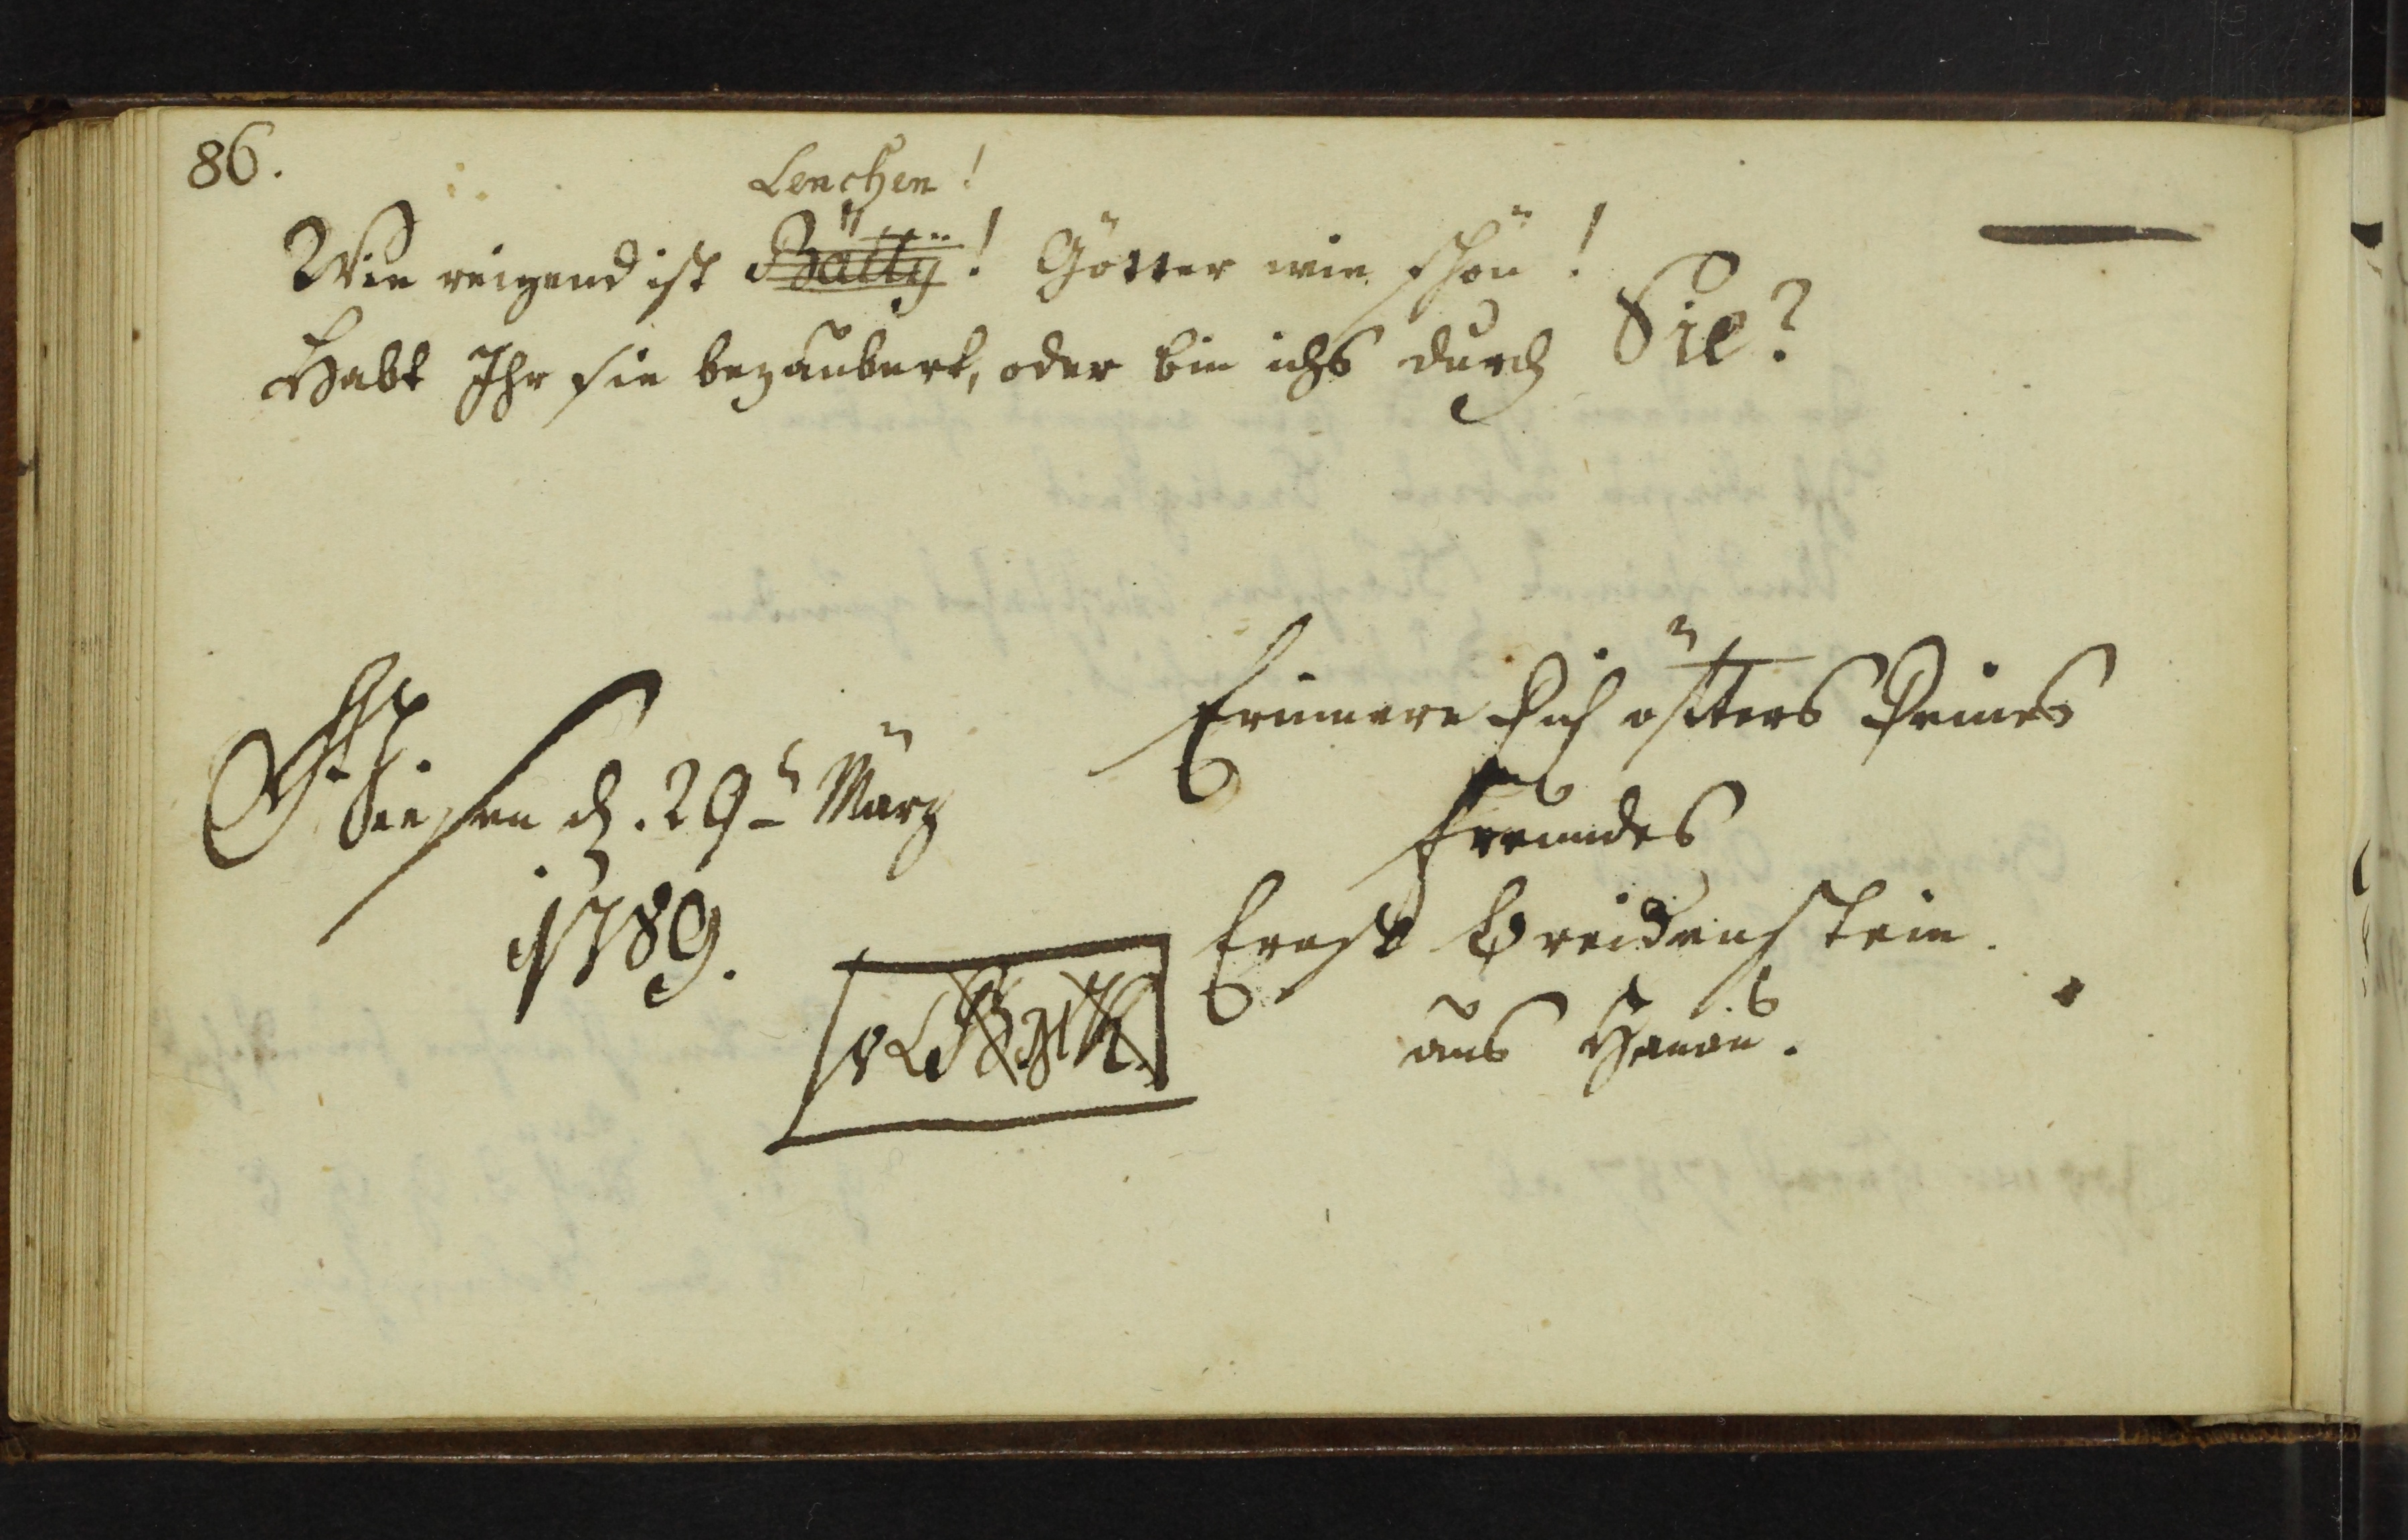 86.
Lenchen!
Wie reizend ist Bätty! Götter wie schön!
Habt Ihr sie bezaubert, oder bin ichs durch Sie?
Giesen d. 29ᵗ März
1789.
Erinnere Dich öfters Deines
Freundes
Ernst Breidenstein.
aus Hanau.